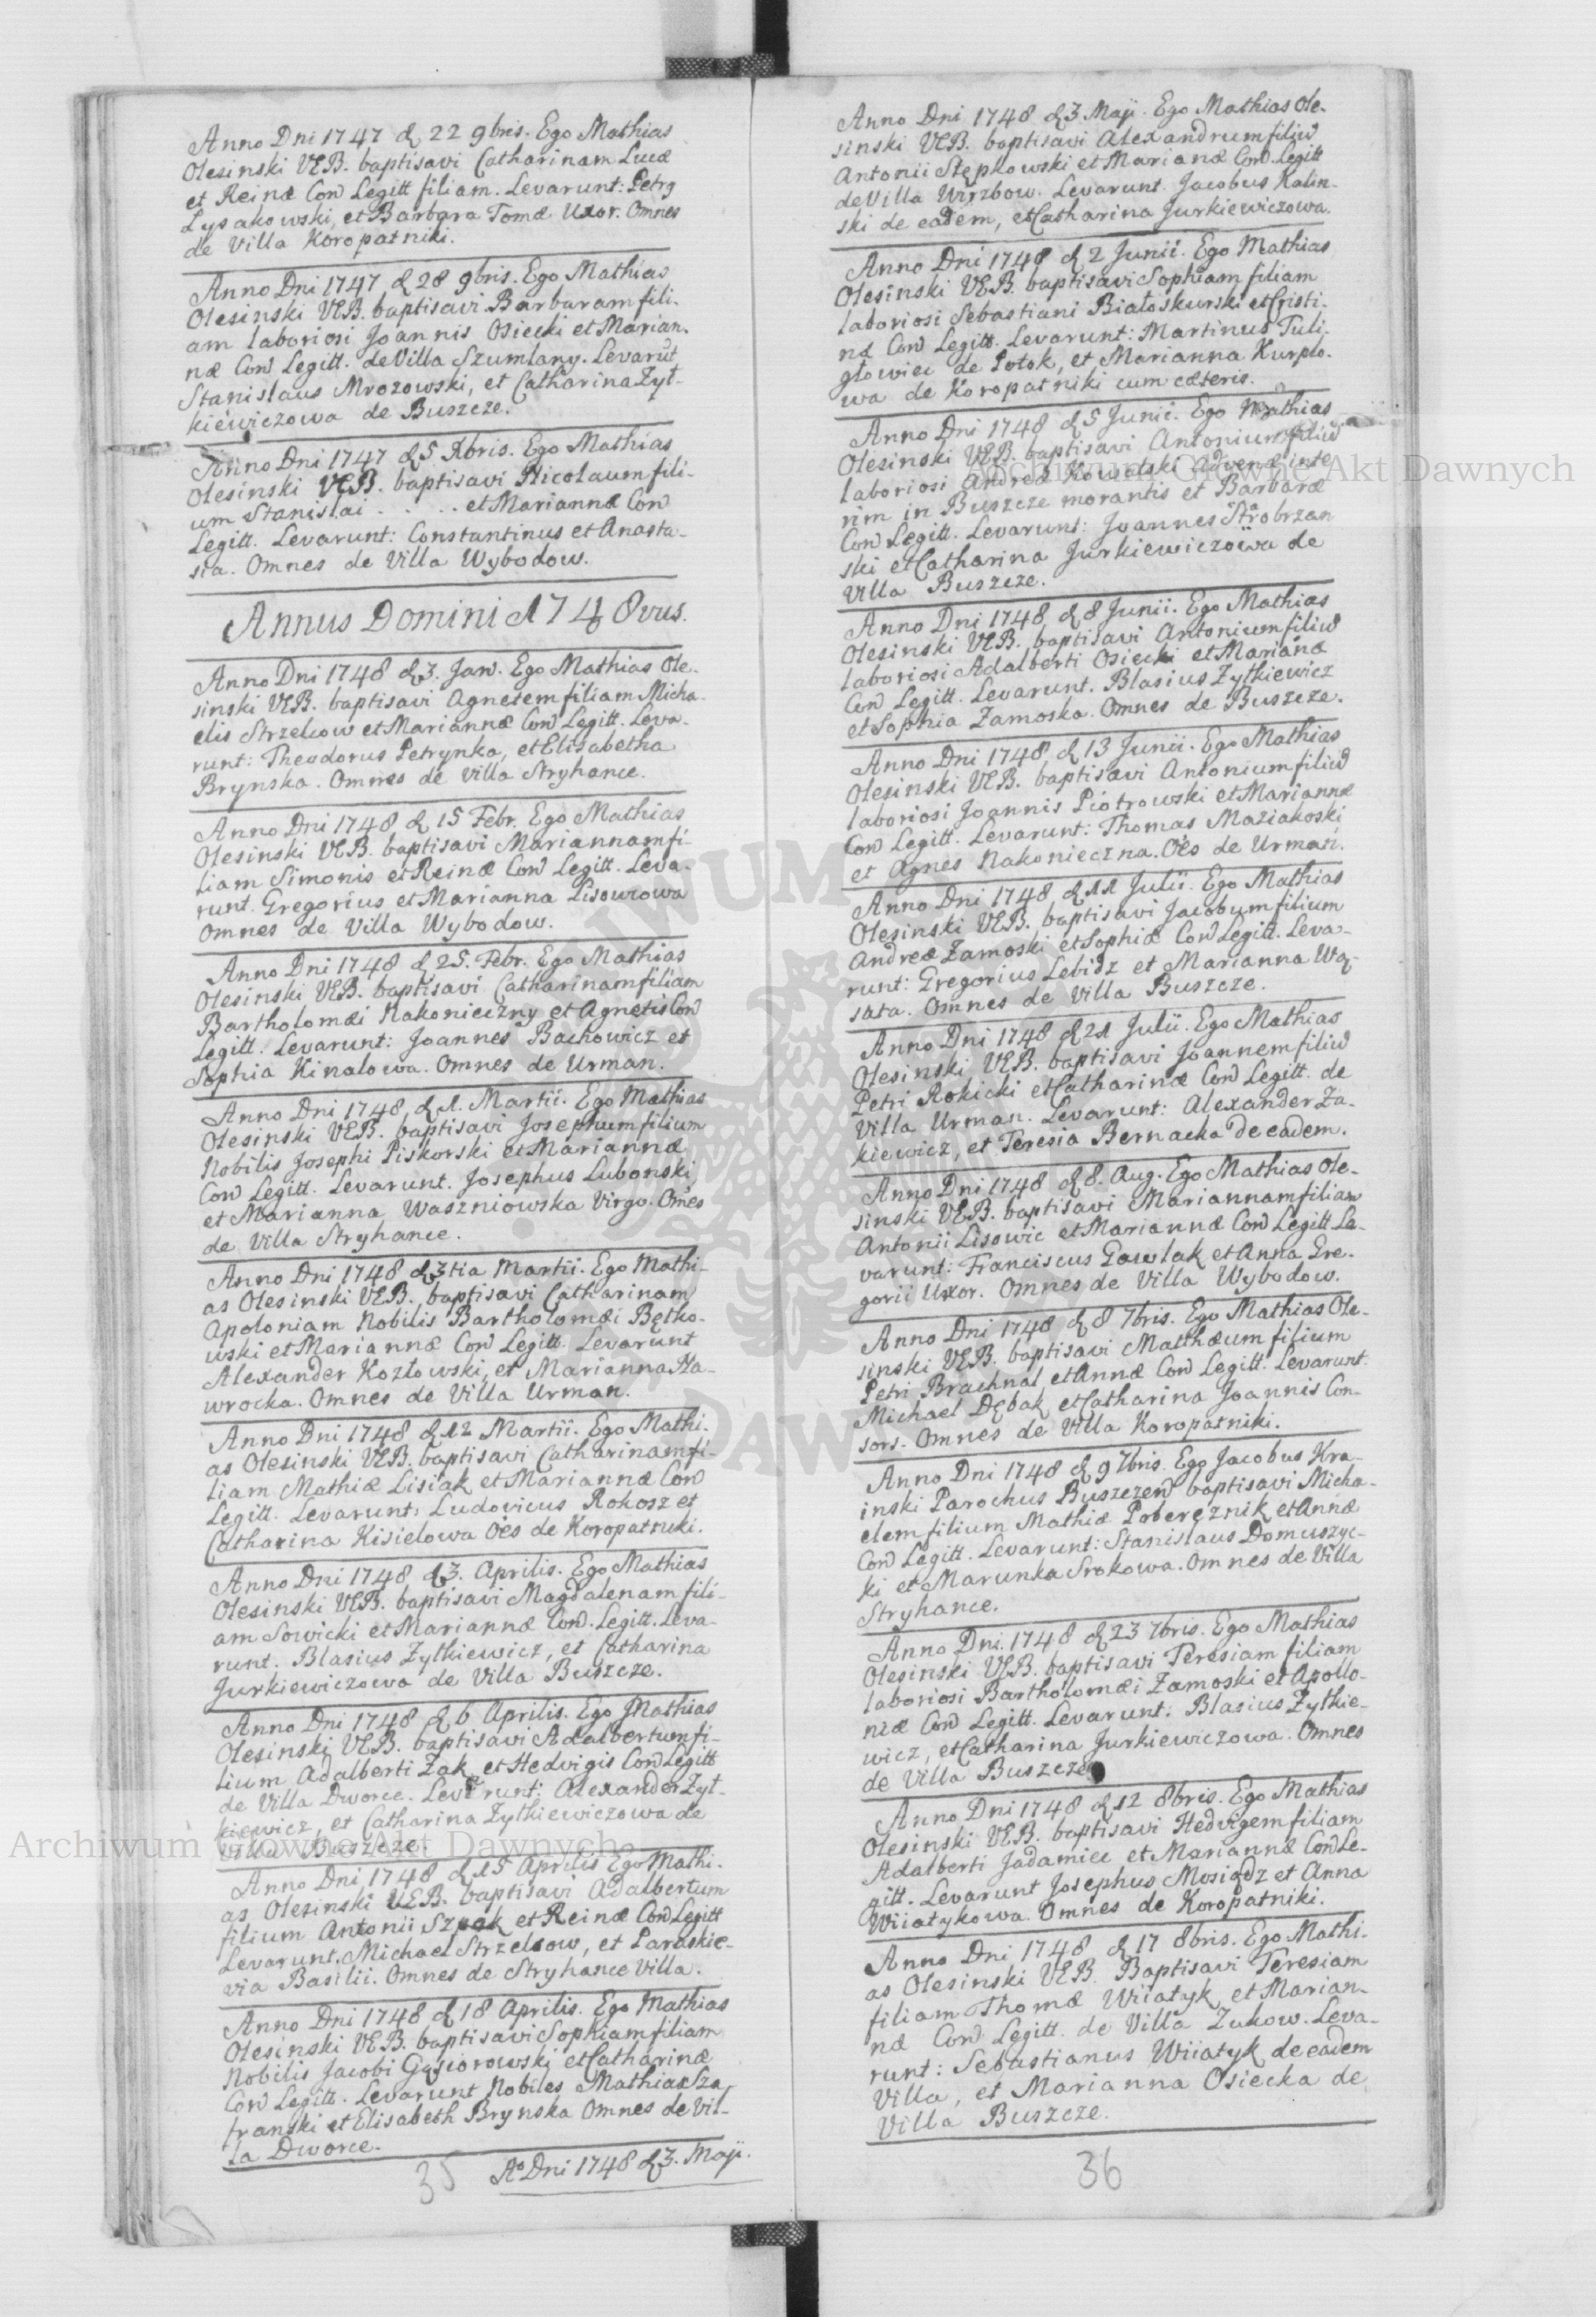 Anno Dni 1747 d 22 9bris. Ego Mathias
Olesinski VEB. baptisavi Catharinam Lucæ
et Reinæ Con Legitt filiam. Levarunt: Petrg
Lysakowski, et Barbara Tomæ Uxor. Omnes
de Villa Koropatniki.
Anno Dni 1747 d 28 9bris. Ego Mathias
Olesinski VEB. baptisavi Barbaram fili-
am laboriosi Joannis Osiecki et Marian-
næ Con Legitt. de Villa Szumlany. Levarut
Stanislaus Mrozowski, et Catharina Zyt-
kiewiczowa de Buszcze.
Anno Dni 1747 d 5 Xbris. Ego Mathias
Olesinski VEB. baptisavi Nicolaum fili-
um Stanislai . . . . et Mariannæ Con
Legitt. Levarunt: Constantinus et Anasta-
sia. Omnes de Villa Wybodow.
Annus Domini 1748vus.
Anno Dni 1748 d 3. Jan. Ego Mathias Ole-
sinski VEB. baptisavi Agnetem filiam Micha-
elis Strzelcow et Mariannæ Con Legitt. Leva-
runt: Theodorus Petrynka, et Elisabetha
Brynska. Omnes de Villa Stryhance.
Anno Dni 1748 d 15 Febr. Ego Mathias
Olesinski VEB. baptisavi Mariannam fi-
liam Simonis et Reinæ Con Legitt. Leva-
runt. Gregorius et Marianna Lisowiowa
Omnes de Villa Wybodow.
Anno Dni 1748 d 25. Febr. Ego Mathias
Olesinski VEB. baptisavi Catharinam filiam
Bartholomæi Nakonieczny et Agnetis Con
Legitt. Levarunt: Joannes Bachowicz et
Sophia Kinalowa. Omnes de Urman.
Anno Dni 1748, d 1. Martii. Ego Mathias
Olesinski VEB. baptisavi Josephum filium
Nobilis Josephi Piskorski et Mariannæ
Con Legitt. Levarunt. Josephus Lubonski,
et Marianna Waszniowska Virgo. Omes
de Villa Stryhance.
Anno Dni 1748 d 3tia Martii. Ego Mathi-
as Olesinski VEB. baptisavi Catharinam
Apoloniam Nobilis Bartholomæi Bętko-
wski et Mariannæ Con Legitt. Levarunt
Alexander Kozłowski, et Marianna Na-
wrocka. Omnes de Villa Urman.
Anno Dni 1748 d 12 Martii. Ego Mathi-
as Olesinski VEB. baptisavi Catharinam fi-
liam Mathiæ Lisiak et Mariannæ Con
Legitt. Levarunt, Ludovicus Rokosz et
Catharina Kisielowa Oes de Koropatniki.
Anno Dni 1748 d 3. Aprilis. Ego Mathias
Olesinski VEB. baptisavi Magdalenam fili-
am Sowicki et Mariannæ Con. Legitt. Leva-
runt. Blasius Zytkiewicz, et Catharina
Jurkiewiczowa de Villa Buszcze.
Anno Dni 1748 d 6 Aprilis. Ego Mathias
Olesinski VEB. baptisavi Adalbertum fi-
lium Adalberti Zak et Hedvigis Con Legitt
de Villa Dworce. Levarunt: Alexander Zyt-
kiewicz, et Catharina Zytkiewiczowa de
Villa Buszcze.
Anno Dni 1748 d 15 Aprilis Ego Mathi-
as Olesinski VEB. baptisavi Adalbertum
filium Antonii Szpak et Reinæ Con Legitt
Levarunt. Michael Strzelcow, et Paraskie-
via Basilii. Omnes de Stryhance Villa.
Anno Dni 1748 d 18 Aprilis. Ego Mathias
Olesinski VEB. baptisavi Sophiam filiam
Nobilis Jacobi Gąsiorowski et Catharinæ
Con Legitt. Levarunt Nobiles Mathias Sza
franski et Elisabeth Brynska Omnes de Vil-
la Dworce.
Ao Dni 1748 d 3. Maji.
35
Anno Dni 1748 d 3 Maji. Ego Mathias Ole-
sinski VEB. baptisavi Alexandrum filiu
Antonii Stępkowski et Marianæ Con Legitt
de Villa Wirzbow. Levarunt. Jacobus Kalin-
ski de eadem, et Catharina Jurkiewiczowa.
Anno Dni 1748 d 2 Junii. Ego Mathias
Olesinski VEB. baptisavi Sophiam filiam
laboriosi Sebastiani Białoskurski et Cristi-
næ Con Legitt. Levarunt: Martinus Tuli-
głowiec de Potok, et Marianna Kurpio-
wa de Koropatniki cum cæteris.
Anno Dni 1748 d 5 Junii. Ego Mathias
Olesinski VEB. baptisavi Antonium filiu
laboriosi Andreæ Kowalski Advenæ inte
rim in Buszcze morantis et Barbaræ
Con Legitt. Levarunt: Joannes Starobrzan
ski et Catharina Jurkiewiczowa de
Villa Buszcze.
Anno Dni 1748 d 8 Junii. Ego Mathias
Olesinski VEB. baptisavi Antonium filiu
laboriosi Adalberti Osiecki et Marianæ
Con Legitt. Levarunt. Blasius Zytkiewicz
et Sophia Zamoska. Omnes de Buszcze.
Anno Dni 1748 d 13 Junii. Ego Mathias
Olesinski VEB. baptisavi Antonium filiu
laboriosi Joannis Piotrowski et Mariannæ
Con Legitt. Levarunt: Thomas Maziakoski
et Agnes Nakonieczna. Oes de Urman.
Anno Dni 1748 d 11 Julii. Ego Mathias
Olesinski VEB. baptisavi Jacobum filium
Andreæ Zamoski et Sophiæ Con Legitt. Leva-
runt: Gregorius Lebidz et Marianna Wą-
sata. Omnes de Villa Buszcze.
Anno Dni 1748 d 21 Julii. Ego Mathias
Olesinski VEB. baptisavi Joannem filiu
Petri Rokicki et Catharinæ Con Legitt. de
Villa Urman. Levarunt: Alexander Za-
kiewicz, et Teresia Bernacka de eadem.
Anno Dni 1748 d 8. Aug. Ego Mathias Ole-
sinski VEB. baptisavi Mariannam filiam
Antonii Lisowic et Mariannæ Con Legitt La-
varunt: Franciscus Gawlak et Anna Gre-
gorii Uxor. Omnes de Villa Wybodow.
Anno Dni 1748 d 8 7bris. Ego Mathias Ole-
sinski VEB. baptisavi Matthæum filium
Petri Brachnal et Annæ Con Legitt. Levarunt.
Michael Dębak et Catharina Joannis Con-
sors. Omnes de Villa Koropatniki.
Anno Dni 1748 d 9 7bris. Ego Jacobus Kra-
inski Parochus Buszczen baptisavi Micha-
elem filium Mathiæ Pobereznik et Annæ
Con Legitt. Levarunt: Stanislaus Domuszyc-
ki et Marunka Srokowa. Omnes de Villa
Stryhance.
Anno Dni. 1748 d 23 7bris. Ego Mathias
Olesinski VEB. baptisavi Teresiam filiam
laboriosi Bartholomæi Zamoski et Apollo-
niæ Con Legitt. Levarunt: Blasius Zytkie-
wicz, et Catharina Jurkiewiczowa. Omnes
de Villa Buszcze
Anno Dni 1748 d 12 8bris. Ego Mathias
Olesinski VEB. baptisavi Hedvigem filiam
Adalberti Jadamiec et Mariannæ Con Le-
gitt. Levarunt Josephus Mosiądz et Anna
Wiiatykowa. Omnes de Koropatniki.
Anno Dni 1748 d 17 8bris. Ego Mathi-
as Olesinski VEB. Baptisavi Teresiam
filiam Thomæ Wiiatyk et Marian-
næ Con Legitt. de Villa Zukow. Leva-
runt: Sebastianus Wiiatyk de eadem
Villa, et Marianna Osiecka de
Villa Buszcze.
36
Archiwum Główne Akt Dawnych
Archiwum Główne Akt Dawnych